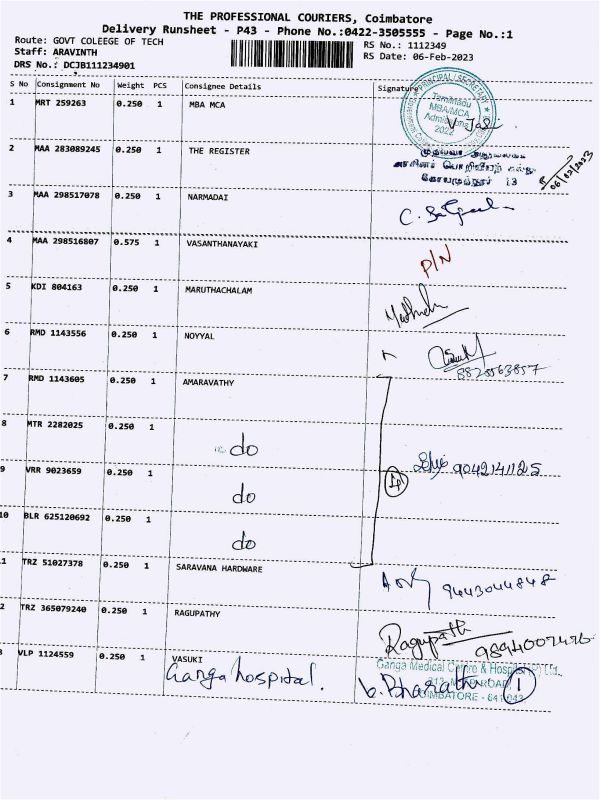 THE PROFESSIONAL COURIERS, Coimbatore
Delivery Runsheet - P43 - Phone No.:0422-3505555 - Page No.:1
Route: GOVT COLEEGE OF TECH
RS No.: 1112349
Staff: ARAVINTH
RS Date: 06-Feb-2023
DRS No.: DCJB111234901
S No Consignment No Weight PCS Consignee Details Signature
1 MRT 259263 0.250 1 MBA MCA
PRINCIPAL / SECRETARY
TamilNadu
MBA/MCA
Admissions
2022
2 MAA 283089245 0.250 1 THE REGISTER
06/02/2023
3 MAA 298517078 0.250 1 NARMADAI
4 MAA 298516807 0.575 1 VASANTHANAYAKI P/N
5 KDI 804163 0.250 1 MARUTHACHALAM
6 RMD 1143556 0.250 1 NOYYAL
8825563857
7 RMD 1143605 0.250 1 AMARAVATHY
8 MTR 2282025 0.250 1 do
9 VRR 9023659 0.250 1 do 9042141125
10 BLR 625120692 0.250 1 do
11 TRZ 51027378 0.250 1 SARAVANA HARDWARE 9443044848
2 TRZ 365079240 0.250 1 RAGUPATHY Ragupath
VLP 1124559 0.250 1 VASUKI
Ganga hospital. b. Bharathi 1
Ganga Medical Centre & Hospital (P) Ltd.,
COIMBATORE - 641 043